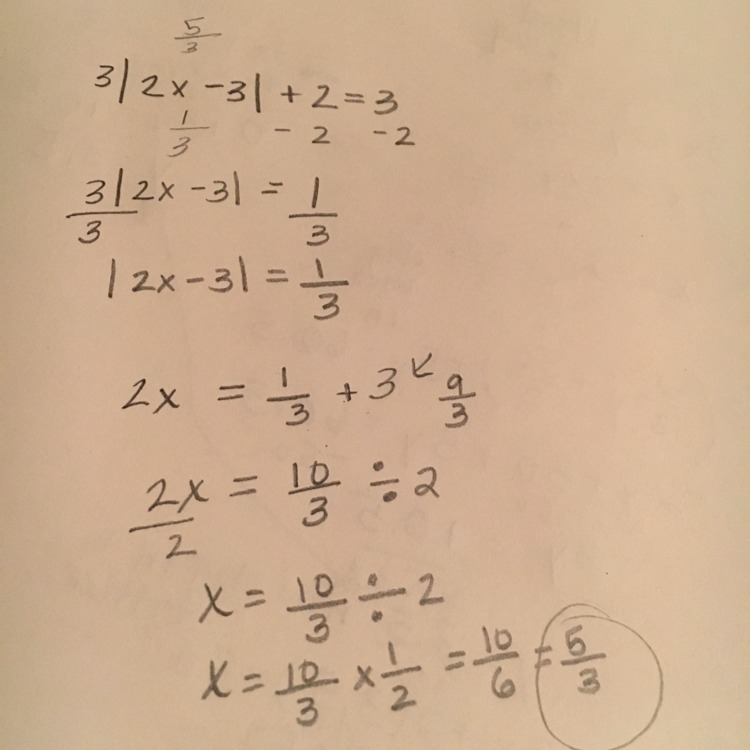 5/3
3|2x -3| + 2 = 3
1/3 - 2 -2
3|2x -3|/3 = 1/3
|2x-3| = 1/3
2x = 1/3 + 3 ↙ 9/3
2x/2 = 10/3 ÷ 2
x = 10/3 ÷ 2
x = 10/3 x 1/2 = 10/6 = 5/3